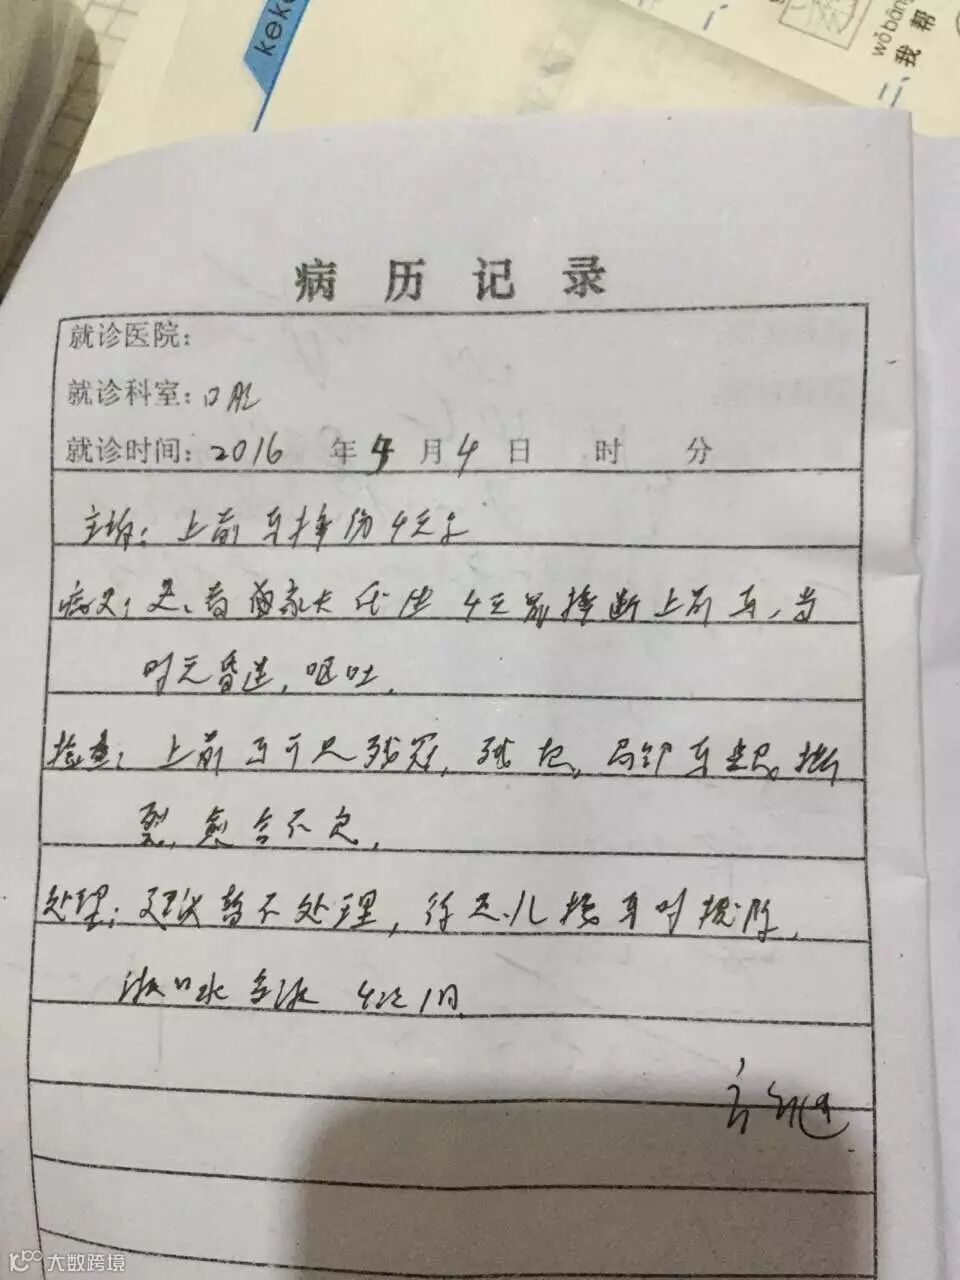 keke
wǒ bāng
我 帮
病 历 记 录
就诊医院：
就诊科室：口腔
就诊时间：2016 年 4 月 4 日 时 分
主诉：上前牙摔伤4天
病史：患者家长代述 4天前摔断上前牙，当
时无昏迷，呕吐．
检查：上前牙可见残冠，残根，局部牙龈撕
裂，愈合不良．
处理：建议暂不处理，待患儿换牙时拔除．
漱口水含漱 4次/日
大数跨境